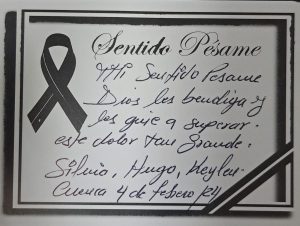 Sentido Pésame
Mi Sentido Pesame
Dios les bendiga y
les guie a superar
este dolor tan grande.
Silvia, Hugo, Keyler
Cuenca 4 de febrero /24